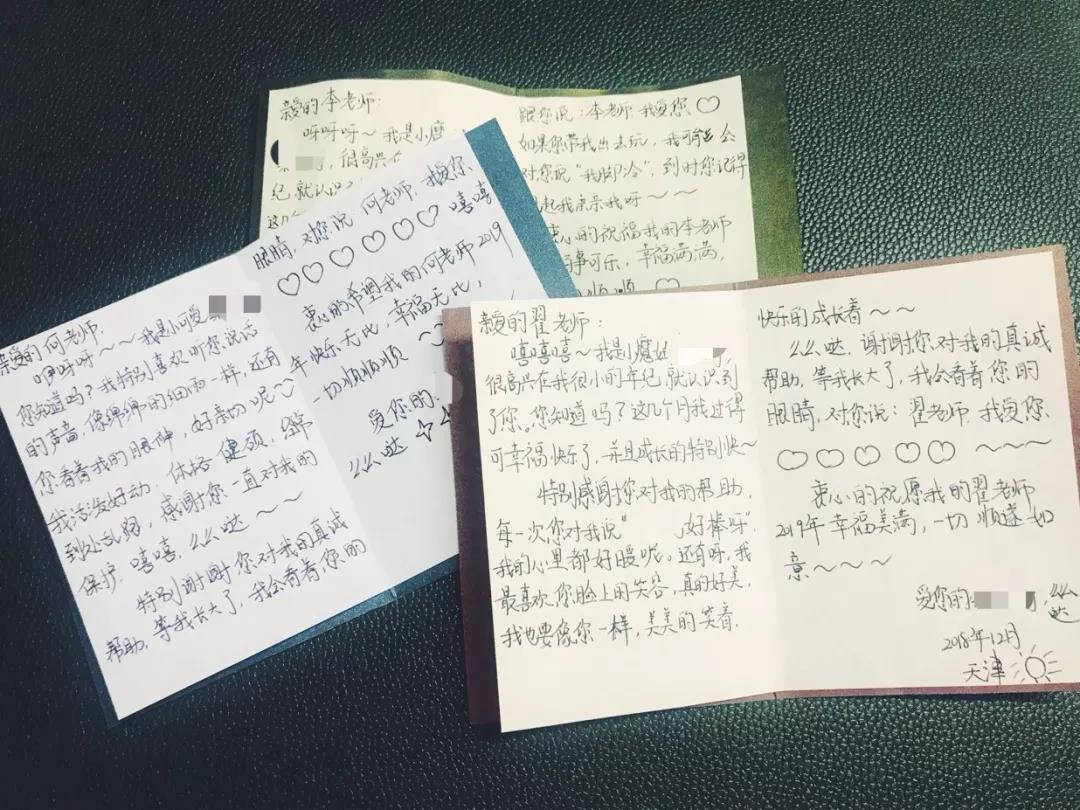 亲爱的李老师:
呀呀呀~我是小魔
,很高兴在
纪,就认识
这几个
跟您说:李老师,我爱您♡
如果您带我出去玩,我可能会
对您说“我脚冷”,到时您记得
起我亲亲我呀~~
衷心的祝福我的李老师
事可乐,幸福满满,
顺顺♡
亲爱的何老师:
咿呀呀~~我是小可爱
您知道吗?我特别喜欢听您说话
的声音,像绵绵的细雨一样,还有
您看着我的眼神,好亲切呢
我活泼好动,体格健硕,总爱
到处乱跑,感谢您一直对我的
保护,嘻嘻,么么哒~
特别谢谢您对我的真诚
帮助,等我长大了,我会看着您的
眼睛,对您说:何老师,我爱您,
♡♡♡♡♡♡嘻嘻
衷心的希望我的何老师2019
年快乐无比,幸福无比,
一切顺顺顺~
爱您的:
么么哒☆☆
亲爱的翟老师:
嘻嘻嘻~我是小魔娃
很高兴在我很小的年纪,就认识到
了您。您知道吗?这几个月我过得
可幸福快乐了,并且成长的特别快~
特别感谢您对我的帮助,
每一次您对我说“ 好棒呀”,
我的心里都好暖呢。还有呀,我
最喜欢您脸上的笑容,真的好美,
我也要像您一样,美美的笑着,
快乐的成长着~~
么么哒,谢谢您对我的真诚
帮助,等我长大了,我会看着您的
眼睛,对您说:翟老师,我爱您,
♡♡♡♡♡~~~
衷心的祝愿我的翟老师
2019年幸福美满,一切顺遂如
意~~~
爱您的: ,么么
哒
2018年12月
天津